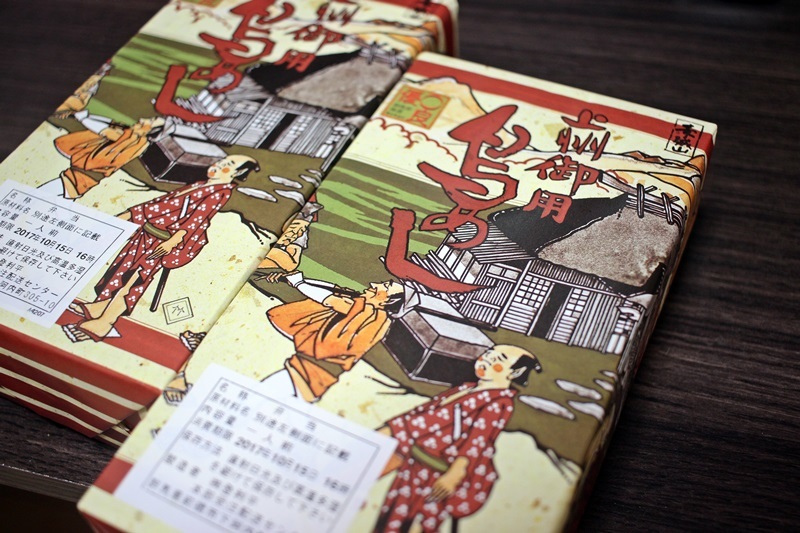 上州
御用
鳥めし
名 称 弁 当
原材料名 別途左側面に記載
内容量 一人前
期限 2017年10月15日 16時
直射日光及び高温多湿
避けて保存して下さい
登利平
注配送センター
内町305-10
優良
上州
御用
鳥めし
名 称 弁 当
原材料名 別途左側面に記載
内容量 一人前
消費期限 2017年10月15日 16時
保存方法 直射日光及び高温多湿
を避けて保存して下さい
製造者 ㈱登利平